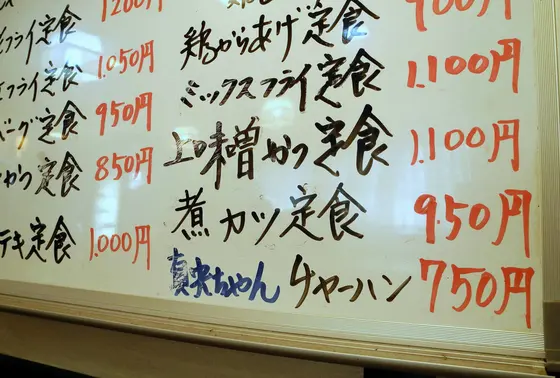 1200円
フライ定食
1.050円
フライ定食
950円
バーグ定食
850円
かつ定食
1.000円
テキ定食
900円
鶏からあげ定食
1,100円
ミックスフライ定食
1,100円
上味噌かつ定食
950円
煮カツ定食
750円
真央ちゃん チャーハン